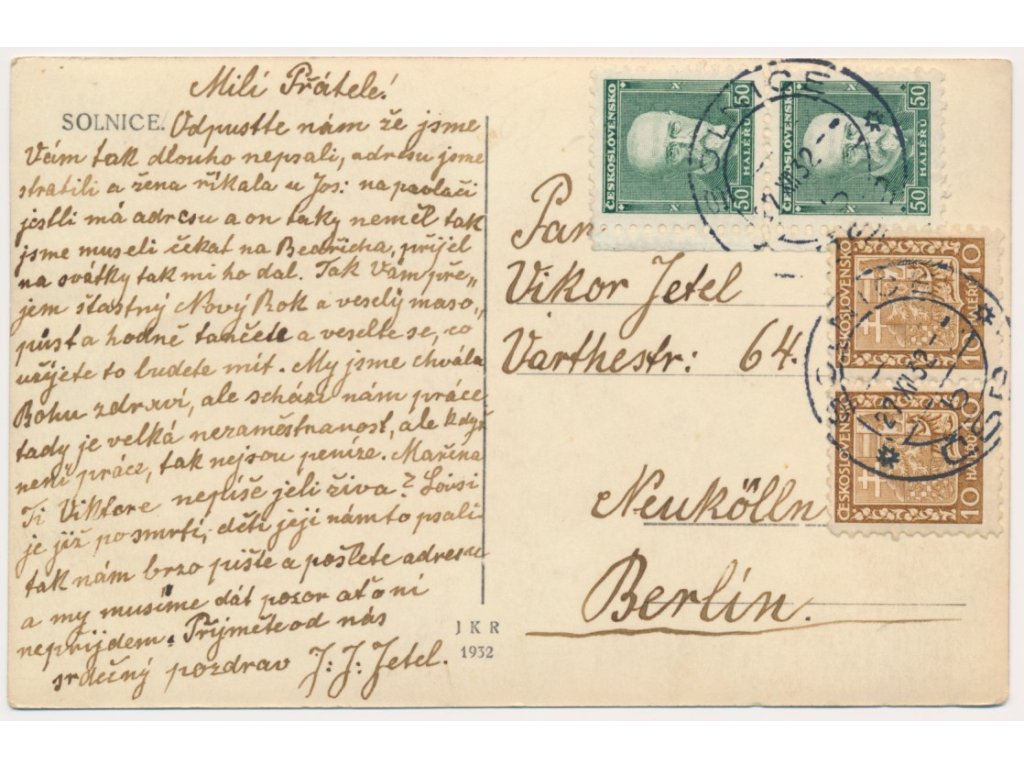 Milí Přátelé!
SOLNICE. Odpustte nám že jsme
Vám tak dlouho nepsali, adresu jsme
stratili a žena říkala u Jos: na pavlači
jestli má adresu a on taky neměl tak
jsme museli čékat na Bedřicha, přijel
na svátky tak mi ho dal. Tak Vám pře-
jem štastný Nový Rok a veselý maso,
půst a hodně tančete a veselte se, co
užijete to budete mít. My jsme chvála
Bohu zdraví, ale scházi nám práce
tady je velká nezaměstnanost, ale když
není práce, tak nejsou peníze. Mařina
Ti Viktore nepíše jeli živa? Loisi
je již po smrti, děti její nám to psali
tak nám brzo pište a pošlete adresu
a my musíme dát pozor at o ní
neprijdem. Přijměte od nás
srdečný pozdrav J: J: Jetel.
JKR
1932
Pan
Vikor Jetel
Varthestr: 64.
Neukölln
Berlín.
ČESKOSLOVENSKO
50 HALÉŘŮ 50
ČESKOSLOVENSKO
50 HALÉŘŮ 50
ČESKOSLOVENSKO
10 HALÉŘŮ 10
ČESKOSLOVENSKO
10 HALÉŘŮ
SOLNICE
27.XII.32